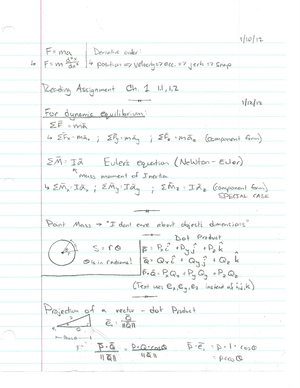 1/10/12
F=ma | Derivative order:
↳ F=m d²x/dt² | ↳ position => velocity => acc. => jerk => snap
Reading Assignment Ch. 1 1.1, 1.2
1/12/12
For dynamic equilibrium:
ΣF̄ = mā
↳ ΣF̄x = māx ; ΣF̄y = māy ; ΣF̄z = māz (component form)
ΣM̄ = Iᾱ Euler's equation (Newton-Euler)
mass moment of Inertia
↳ ΣM̄x = Iᾱx ; ΣM̄y = Iᾱy ; ΣM̄z = Iᾱz (component form)
SPECIAL CASE
Point Mass → "I don't care about objects dimensions"
Dot Product
S = rθ
P̄ = Px î + Py ĵ + Pz k̂
θ is in radians!
Q̄ = Qx î + Qy ĵ + Qz k̂
P̄·Q̄ = PxQx + PyQy + PzQz
(Text uses ex, ey, ez instead of i, j, k)
Projection of a vector - dot Product
ēs = Q̄/‖Q̄‖
P̄·Q̄/‖Q̄‖ = P·Q·cosθ/‖Q̄‖
P̄·ēs = P·1·cosθ
= p cosθ